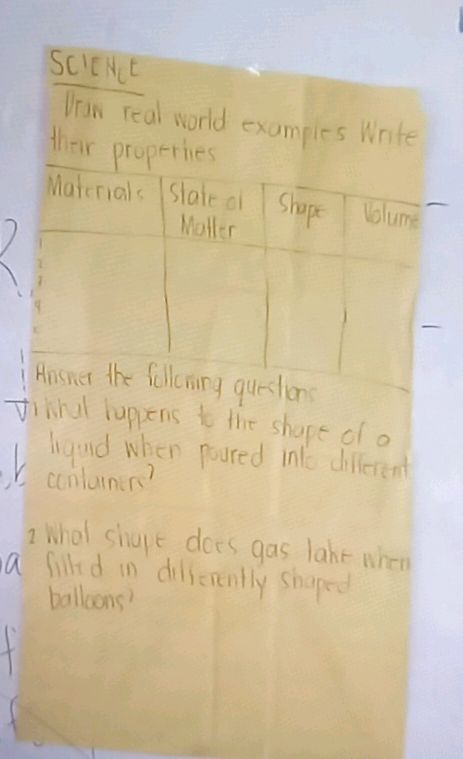 SCIENCE
Draw real world examples Write
their properties
Materials State of Shape Volume
Matter
1
2
3
4
5
Answer the following questions
1 What happens to the shape of a
liquid when poured into different
containers?
2 What shape does gas take when
filled in differently shaped
balloons?